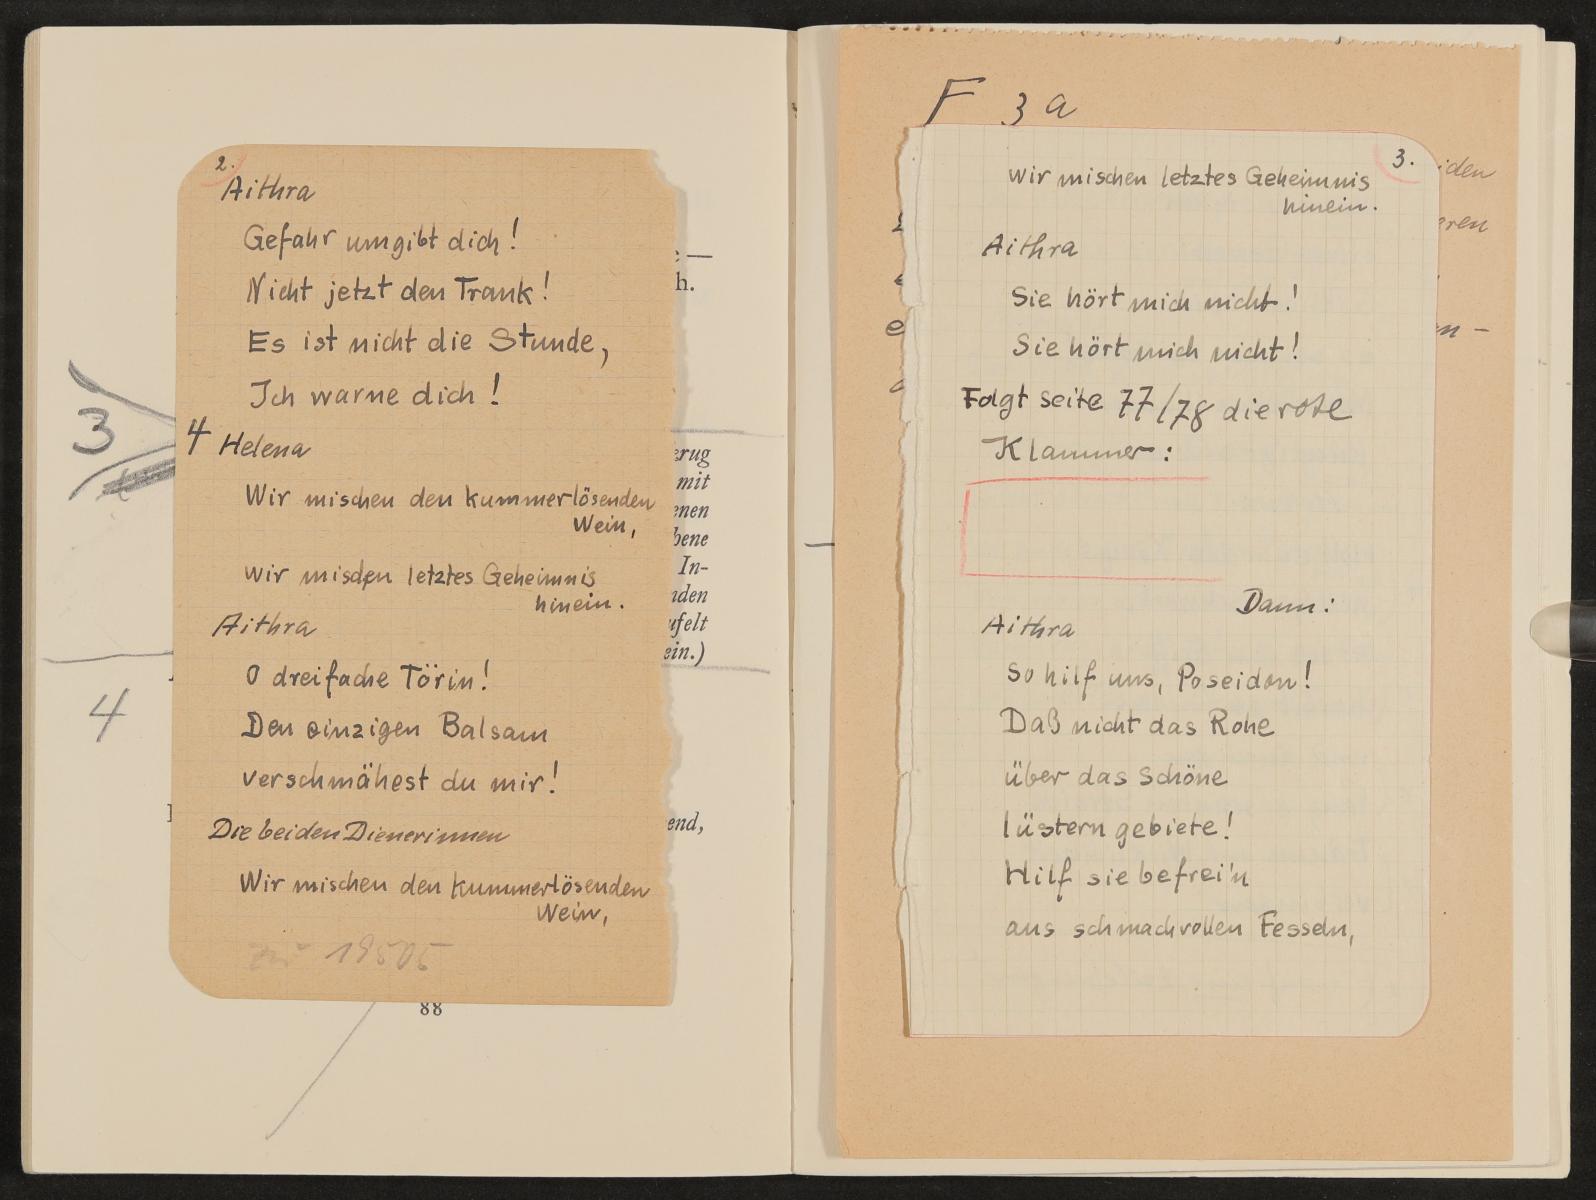 2.
Aithra
Gefahr umgibt dich!
Nicht jetzt den Trank!
Es ist nicht die Stunde,
Ich warne dich!
4 Helena
Wir mischen den kummerlösenden
Wein,
wir mischen letztes Geheimnis
hinein.
Aithra
O dreifache Törin!
Den einzigen Balsam
verschmähest du mir!
Die beiden Dienerinnen
Wir mischen den kummerlösenden
Wein,
3
4
h.
mit
In-
88
F 3 a
3.
wir mischen letztes Geheimnis
hinein.
Aithra
Sie hört mich nicht!
Sie hört mich nicht!
Folgt seite 77/78 die rote
Klammer:
Dann:
Aithra
So hilf uns, Poseidon!
Daß nicht das Rohe
über das Schöne
lüstern gebiete!
Hilf sie befrei'n
aus schmachvollen Fesseln,